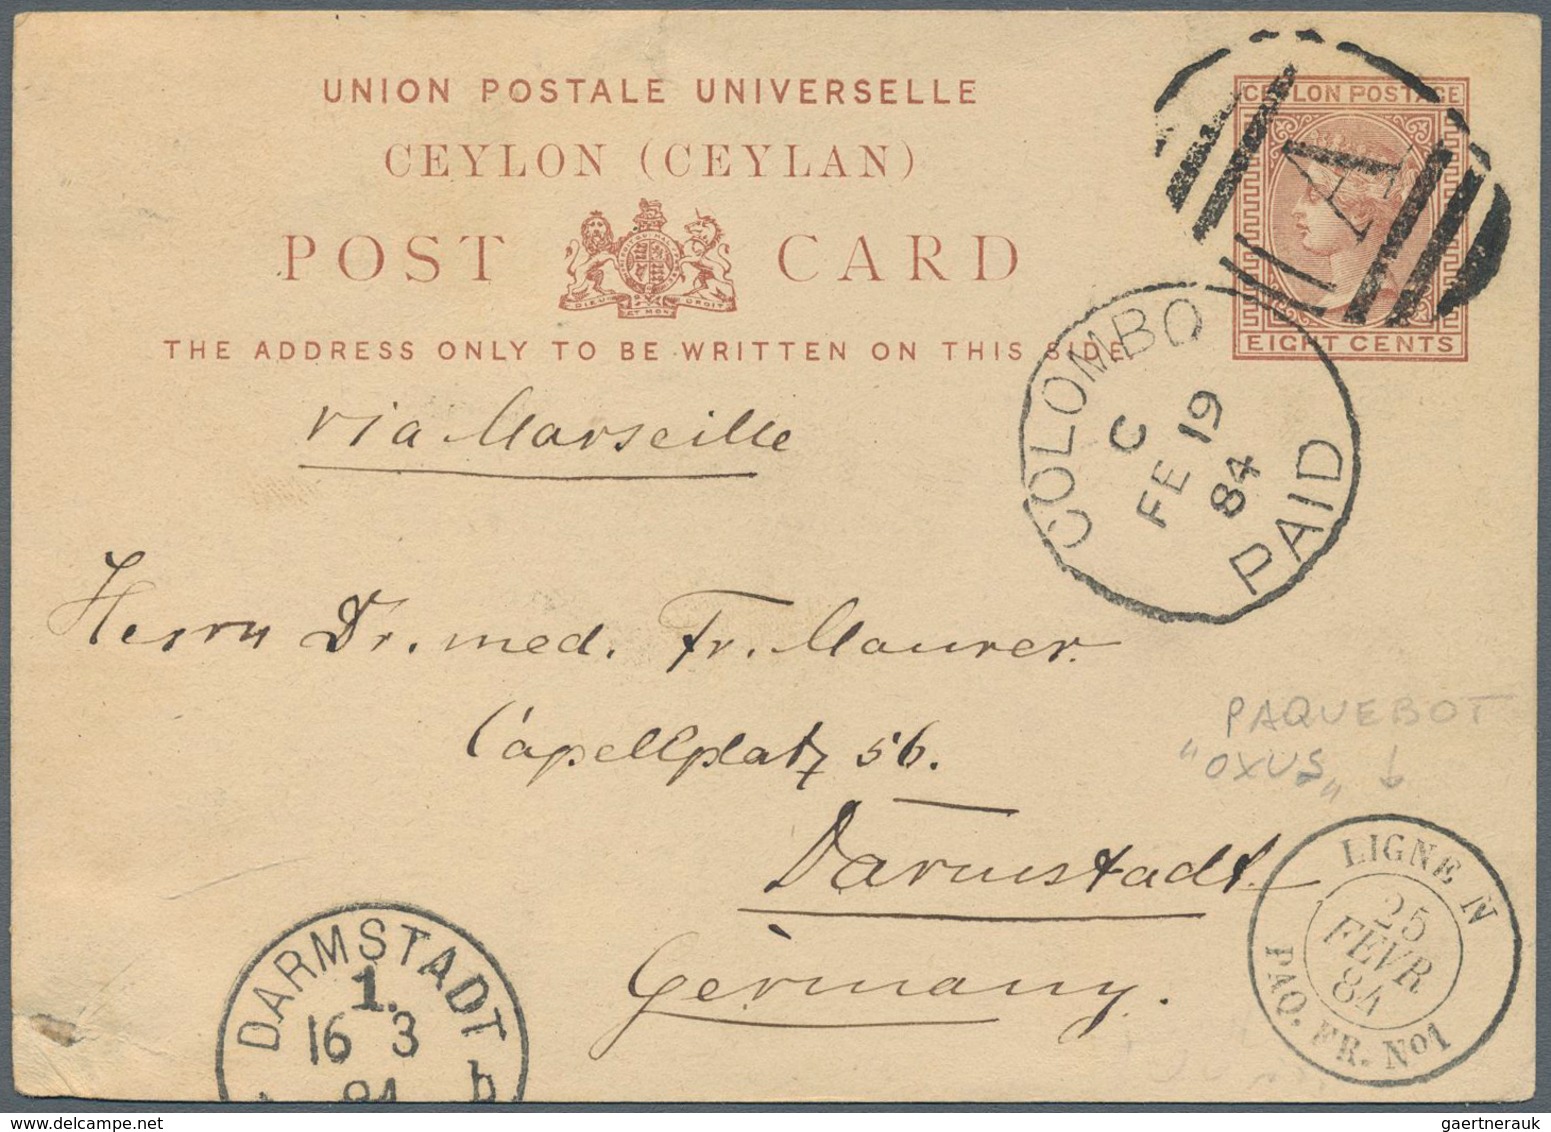 UNION POSTALE UNIVERSELLE
CEYLON (CEYLAN)
POST CARD
DIEU ET MON DROIT
THE ADDRESS ONLY TO BE WRITTEN ON THIS SIDE
CEYLON POSTAGE
EIGHT CENTS
A
COLOMBO
C
FE 19
84
PAID
via Marseille
Herrn Dr. med. Fr. Maurer.
Capellplatz 56.
Darmstadt.
Germany.
PAQUEBOT
"OXUS"
LIGNE N
25
FEVR
84
PAQ. FR. No1
DARMSTADT
1.
16 3
84
b
gaertnerauk @ delcampe.net